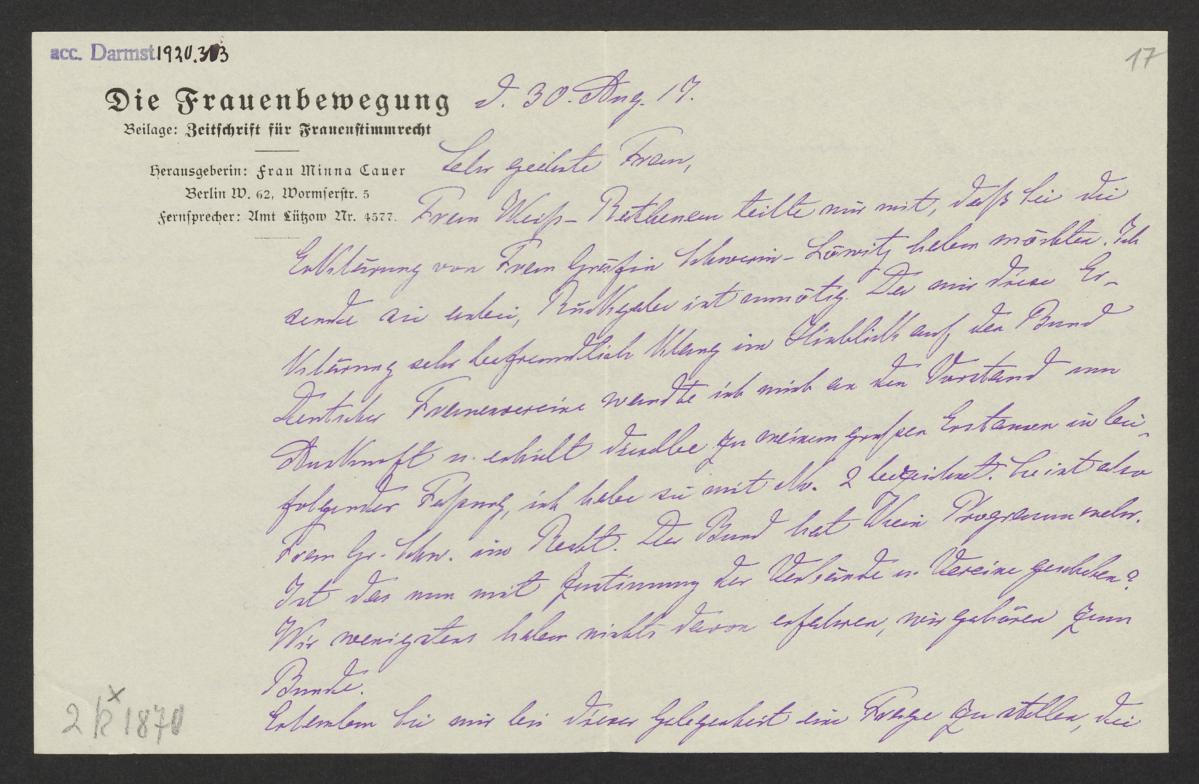 acc. Darmst. 1920.303
17
Die Frauenbewegung
Beilage: Zeitschrift für Frauenstimmrecht
Herausgeberin: Frau Minna Cauer
Berlin W. 62, Wormserstr. 5
Fernsprecher: Amt Lützow Nr. 4577.
d. 30. Aug. 17.
Sehr geehrte Frau,
Frau Weiss- teilte mir mit, daß Sie die
Erklärung von Frau Gräfin Schwerin-Löwitz haben möchten. Ich
sende sie anbei, Rückgabe ist unnötig. Da mir diese Er-
klärung sehr befremdlich klang im Hinblick auf den Bund
Deutscher Frauenvereine wandte ich mich an den Vorstand um
Auskunft u. erhielt dieselbe zu meinem großen Erstaunen in bei-
folgender Faßung, ich habe sie mit No. 2 bezeichnet. Sie ist also
Frau Gr. Schw. im Recht. Der Bund hat kein Programm mehr.
Ist das nun mit Zustimmung der Verbände u. Vereine geschehen?
Wir wenigstens haben nichts davon erfahren, wir gehören zum
Bunde.
Erlauben Sie mir bei dieser Gelegenheit eine Frage zu stellen, die
2 1870